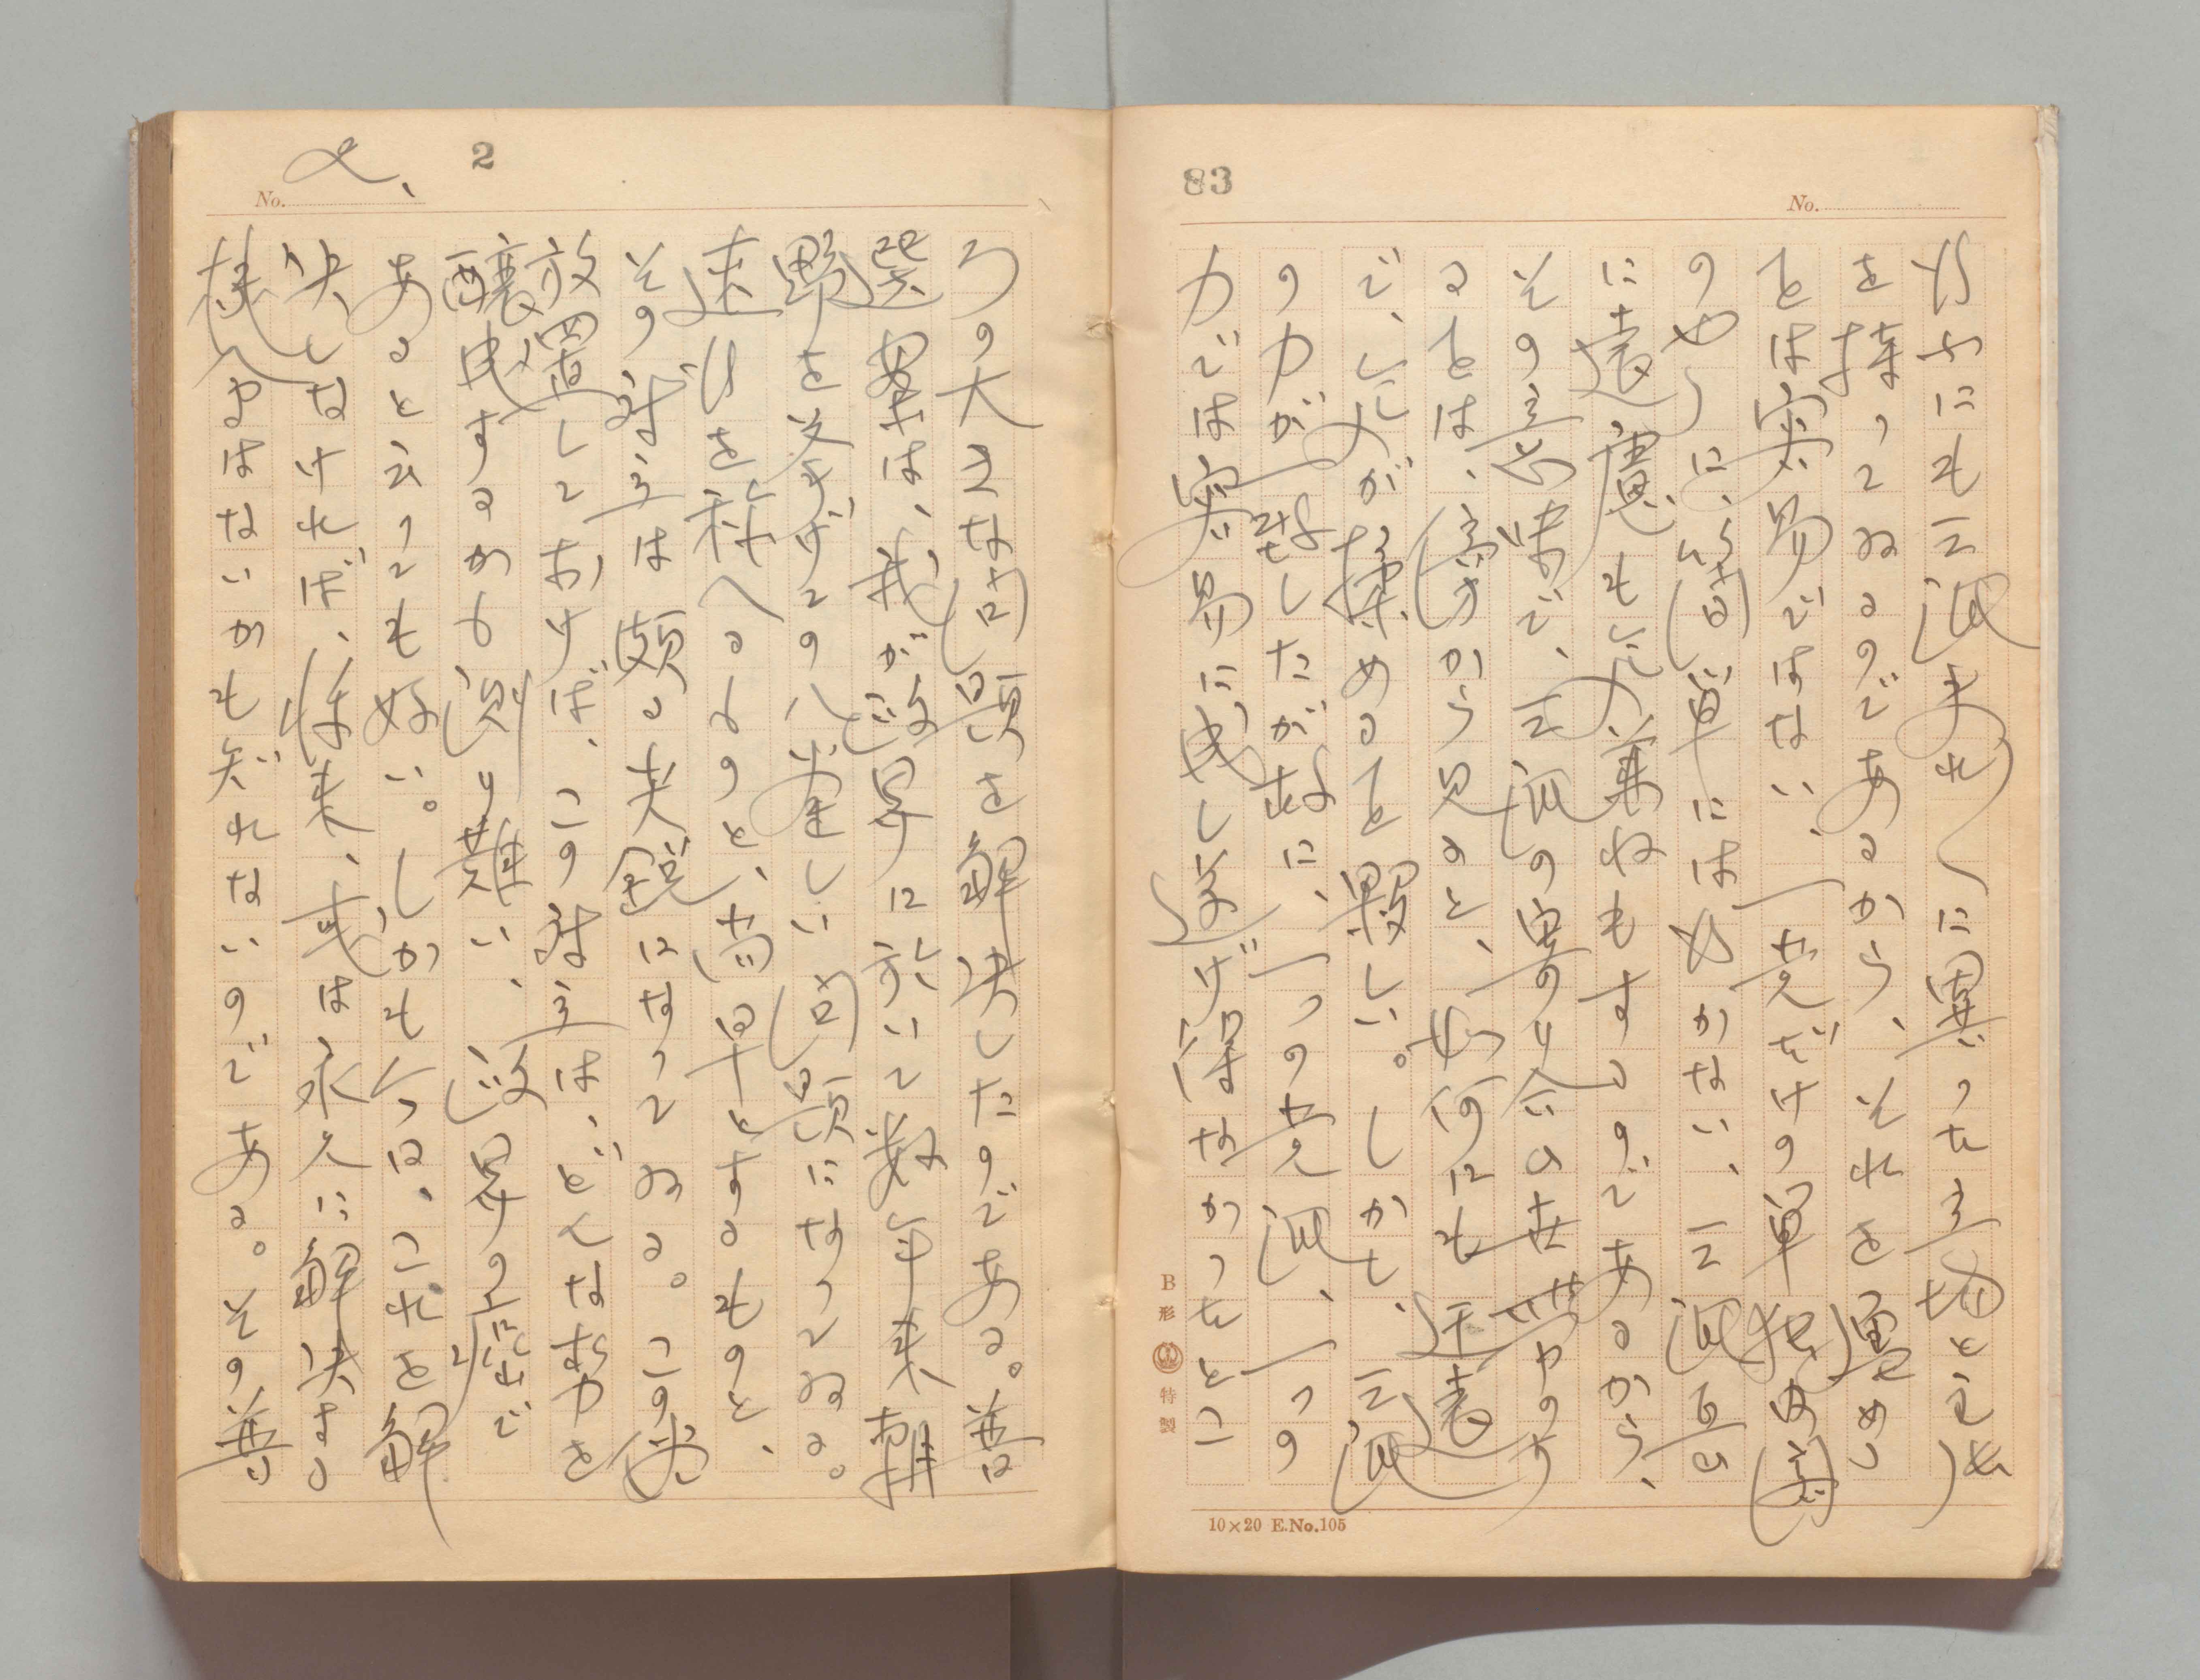 83
No.
行ふにも三派夫れ〳〵に異つた立場と主張
を持つてゐるのであるから、それを纏めるこ
とは容易ではない、一党だけの単独内閣
のやうに、簡単には行かない、三派互ひ
に遠慮も気兼ねもするのであるから、
その意味で、三派の寄り合ひ世帯
ることは、傍から見ると、如何にも迂遠
で、気が揉めること夥しい。しかも、三派
の力が したが故に、一つの党派、一つの
力では容易に成し遂げ得なかつたとこ
B形 特製
10×20 E.No.105
2
No.
ろの大きな問題を解決したのである。普
選案は、我が政界に於いて数年来朝
野を挙げての八釜しい問題になつてゐる。
速行を称へるものと、尚早とするものと、
その対立は頗る尖鋭になつてゐる。この儘
放置しておけば、この対立は、どんな勢力を
醸成するかも測り難い、政界の癌で
あると云つても好い。しかも今は、これを解
決しなければ、将来、或は永久に解決する
機会はないかも知れないのである。その普